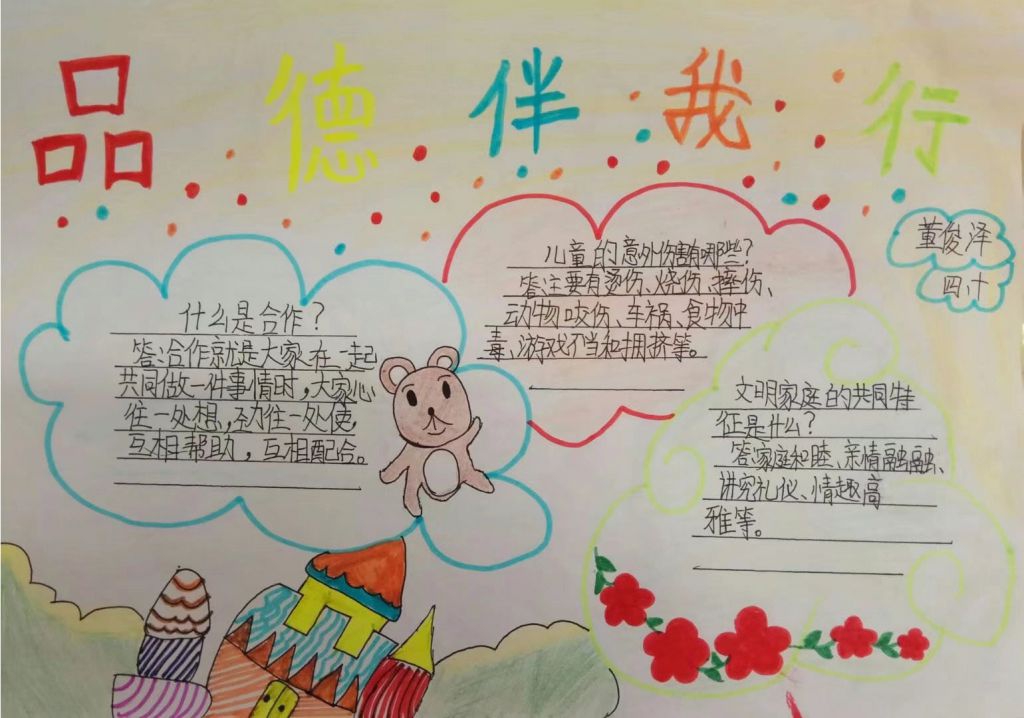 品德伴我行
董俊泽
四.十
儿童的意外伤害有哪些?
答:主要有烫伤、烧伤、摔伤、
动物咬伤、车祸、食物中
毒、游戏不当和拥挤等。
什么是合作?
答:合作就是大家在一起
共同做一件事情时,大家心
往一处想,劲往一处使,
互相帮助,互相配合。
文明家庭的共同特
征是什么?
答:家庭和睦、亲情融融、
讲究礼仪、情趣高
雅等。